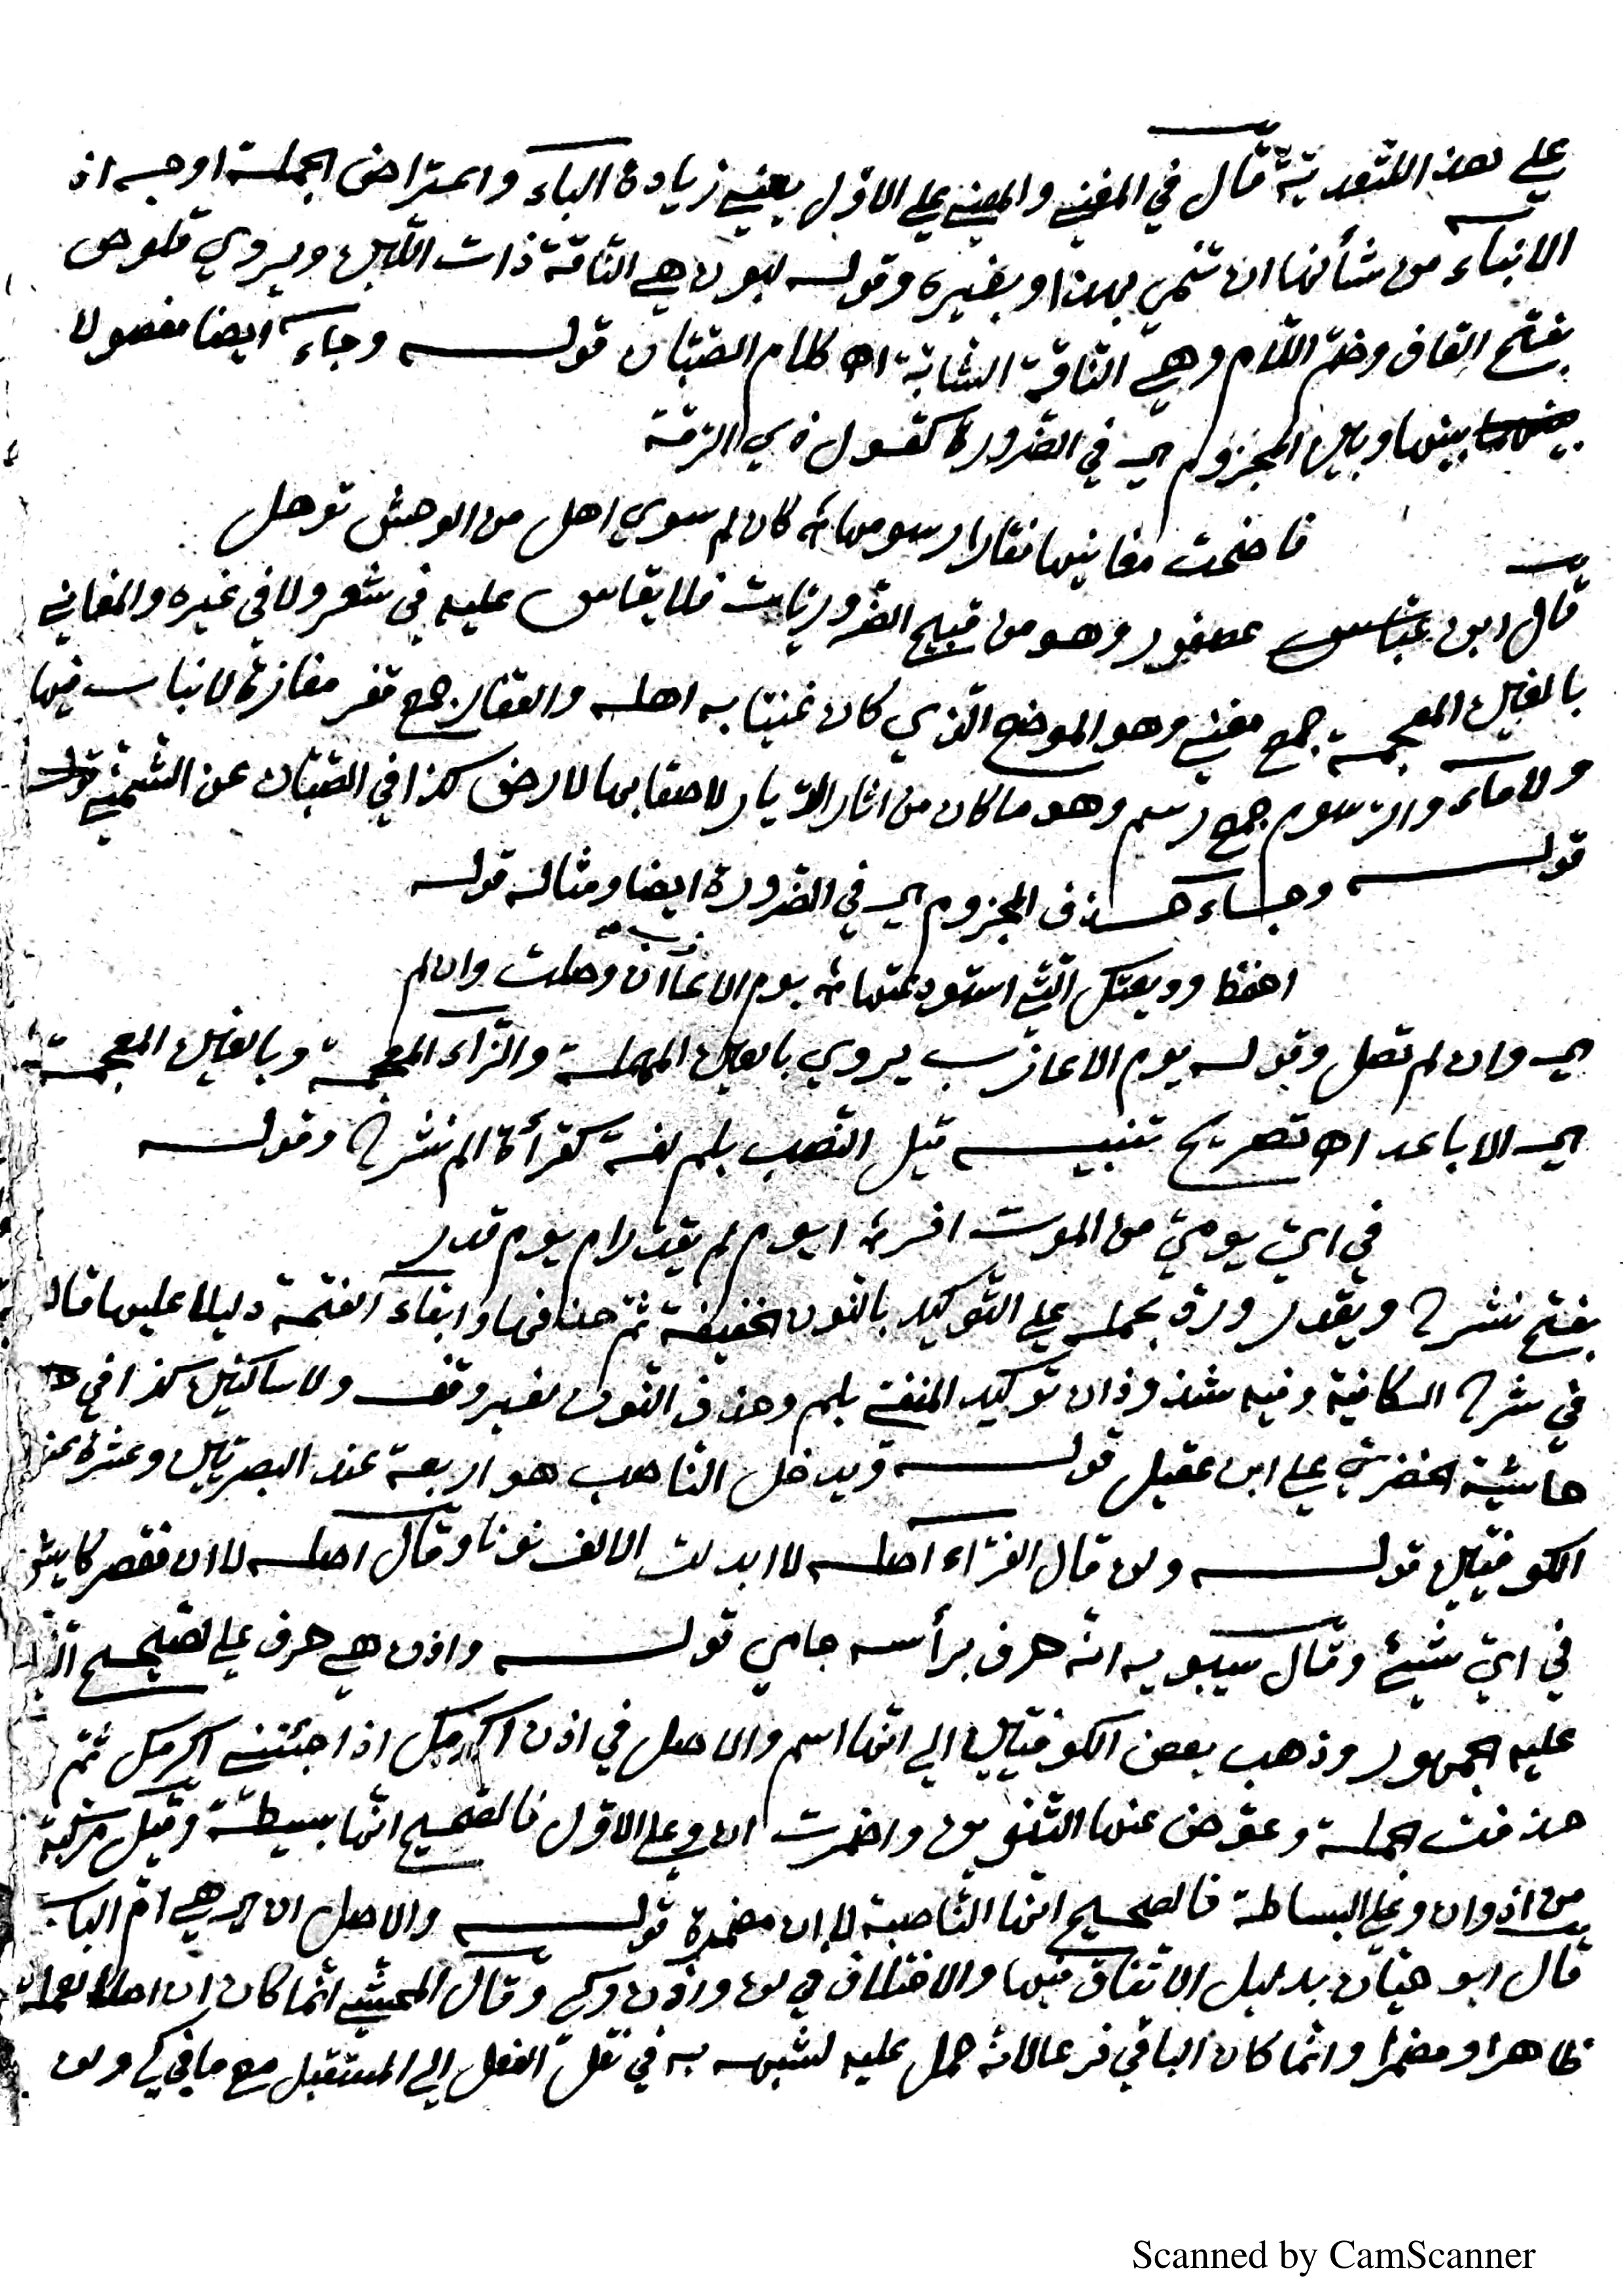 على هذا للتعدية قال في المغني والمعنى على الاول يعني زيادة الباء واعتراض الجملة اوجه اذ
الانباء من شأنها ان تنمي بهذا وبغيره وقوله لبون هي الناقة ذات اللبن ويروي قلوص
بفتح القاف وضم اللام وهي الناقة الشابة اه كلام الصبان قوله وجاء ايضا مفصولا
بينها وبين المجزوم اي في الضرورة كقول ذي الرمة
فاضحت مغانيها قفارا رسومها كان لم سوي اهل من الوحش توهل
قال ابن عصفور وهو من قبيح الضروريات فلا يقاس عليه في شعر ولا في غيره والمغاني
بالغين المعجمة جمع مغني وهو الموضع الذي كان غنيا به اهله والقفار جمع قفر مفازة لا نبات فيها
ولا ماء والرسوم جمع رسم وهو ما كان من اثار الديار لاصقا بها لارض كذا في الصبان عن الشمني
قوله وجاء حذف المجزوم اي في الضرورة ايضا ومثاله قوله
احفظ وديعتك التي استودعتها يوم الاعازب ان وصلت وان لم
اي وان لم تصل وقوله يوم الاعازب يروي بالعين المهملة والزاء المعجمة وبالغين المعجمة
اي الاباعد اه تصريح تنبيه قيل النصب بلم لغة كقرأة الم نشرح وقوله
في اي يومي من الموت افر ايوم لم يقدر ام يوم قدر
بفتح نشرح ويقدر ورد بحمله على التوكيد بالنون الخفيفة ثم حذفها وابقاء الفتحة دليلا عليها قال
في شرح الكافية وفيه شذوذان توكيد المنفي بلم وحذف النون لغير وقف ولا ساكنين كذا في
حاشية الخضري على ابن عقيل قوله ويدخل الناصب هو اربعة عند البصريين وعشرة عند
الكوفيين قوله ولن قال الفراء اصله لا ابدلت الالف نونا وقال اصله لا ان فقصر كايش
في اي شيئ وقال سيبويه انه حرف برأسه جامي قوله واذن هي حرف على الصحيح الذي
عليه الجمهور وذهب بعض الكوفيين الي انها اسم والاصل في اذن اكرمك اذا جئتني اكرمك ثم
حذفت الجملة وعوض عنها التنوين واضمرت ان وعلى الاول فالصحيح انها بسيطة وقيل مركبة
من اذ وان وعلى البساطة فالصحيح انها الناصبة لا ان مضمرة قوله والاصل ان اي هي ام الباب
قال ابو حيان بدليل الاتفاق فيها والاختلاف في لن واذن وكي وقال المحشي انما كان ان اصلا لعمله
ظاهرا ومضمرا وانما كان الباقي فرعا لانه حمل عليه لشبهه به في نقل الفعل الي المستقبل مع ما في كي ولن
Scanned by CamScanner